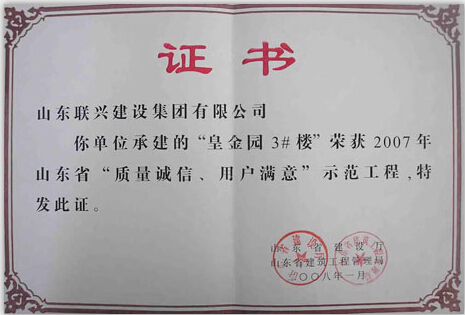 证书
山东联兴建设集团有限公司
你单位承建的“皇金园 3#楼”荣获 2007 年
山东省“质量诚信、用户满意”示范工程,特
发此证。
山东省建设厅
山东省建筑工程管理局
二〇〇八年一月